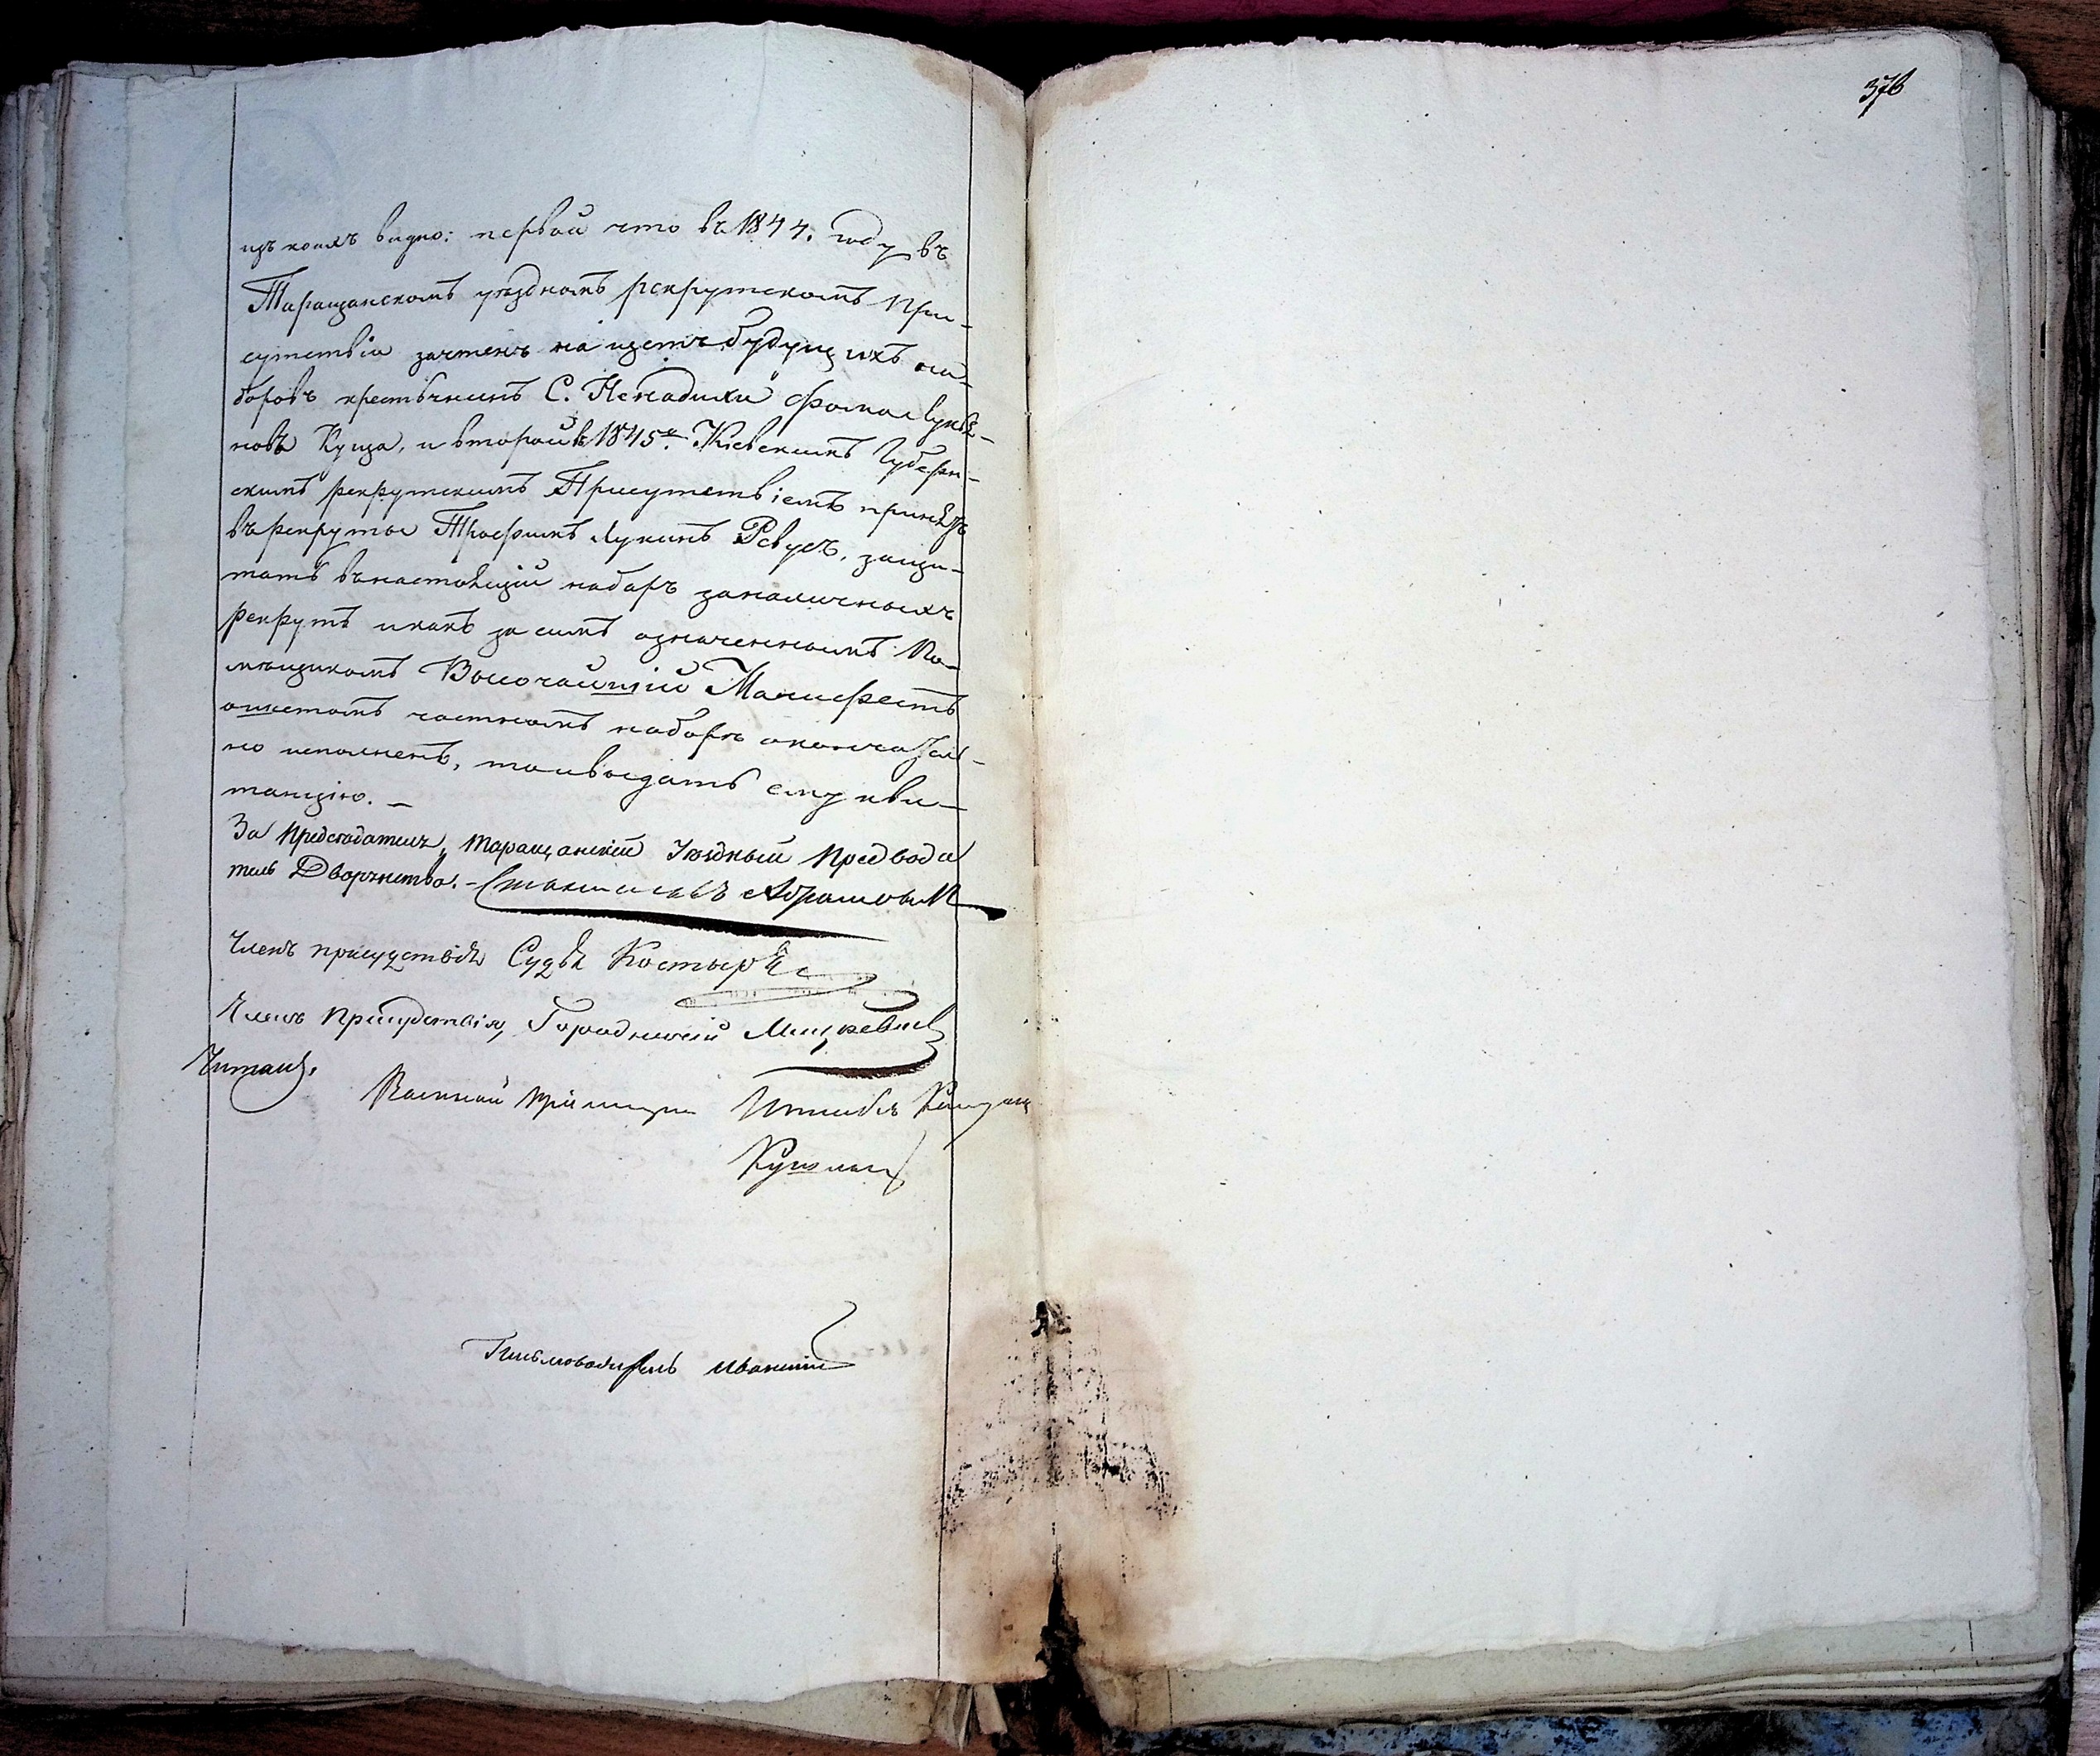 376
изъ коихъ видно: первой что въ 1844. году въ
Таращанскомъ уѣздномъ рекрутскомъ При-
сутствіи зачтенъ на щетъ будущихъ на-
боровъ крестьянинъ С. Ненадихи Фома Лукья-
новъ Куца, и второй въ 1845 г. Кіевскимъ Губерн-
скимъ рекрутскимъ Присутствіемъ принятъ
въ рекруты Трофимъ Лукинъ Ревусъ, защи-
тать въ настоящій наборъ за наличныхъ
рекрутъ и какъ за симъ означеннымъ По-
мѣщикомъ Высочайшій Манифестъ
о шестомъ частномъ наборѣ окончатель-
но исполненъ, то и выдать ему кви-
танцію. —
За Предсѣдателя, Таращанскій Уѣздный Предводи
тель Дворянства. - Станиславъ Абрамович
Членъ присудствія Судья Костыря
Членъ Присудствія, Городничій Мицкевич
Читалъ.
Военный Пріемщик Штабсъ Капитан
Письмоводитель Иваницкий